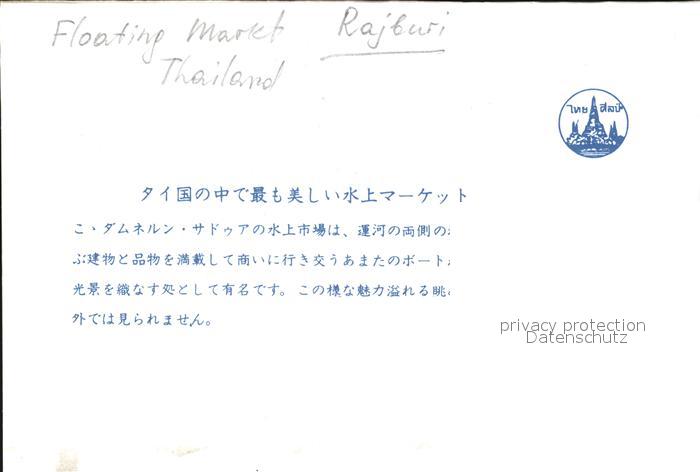 Floating Markt Rajburi
Thailand
ไทย ศิลป์
タイ国の中で最も美しい水上マーケット
こゝダムネルン・サドゥアの水上市場は、運河の両側の
ぶ建物と品物を満載して商いに行き交うあまたのボート
光景を織なす処として有名です。この様な魅力溢れる眺
外では見られません。
privacy protection
Datenschutz